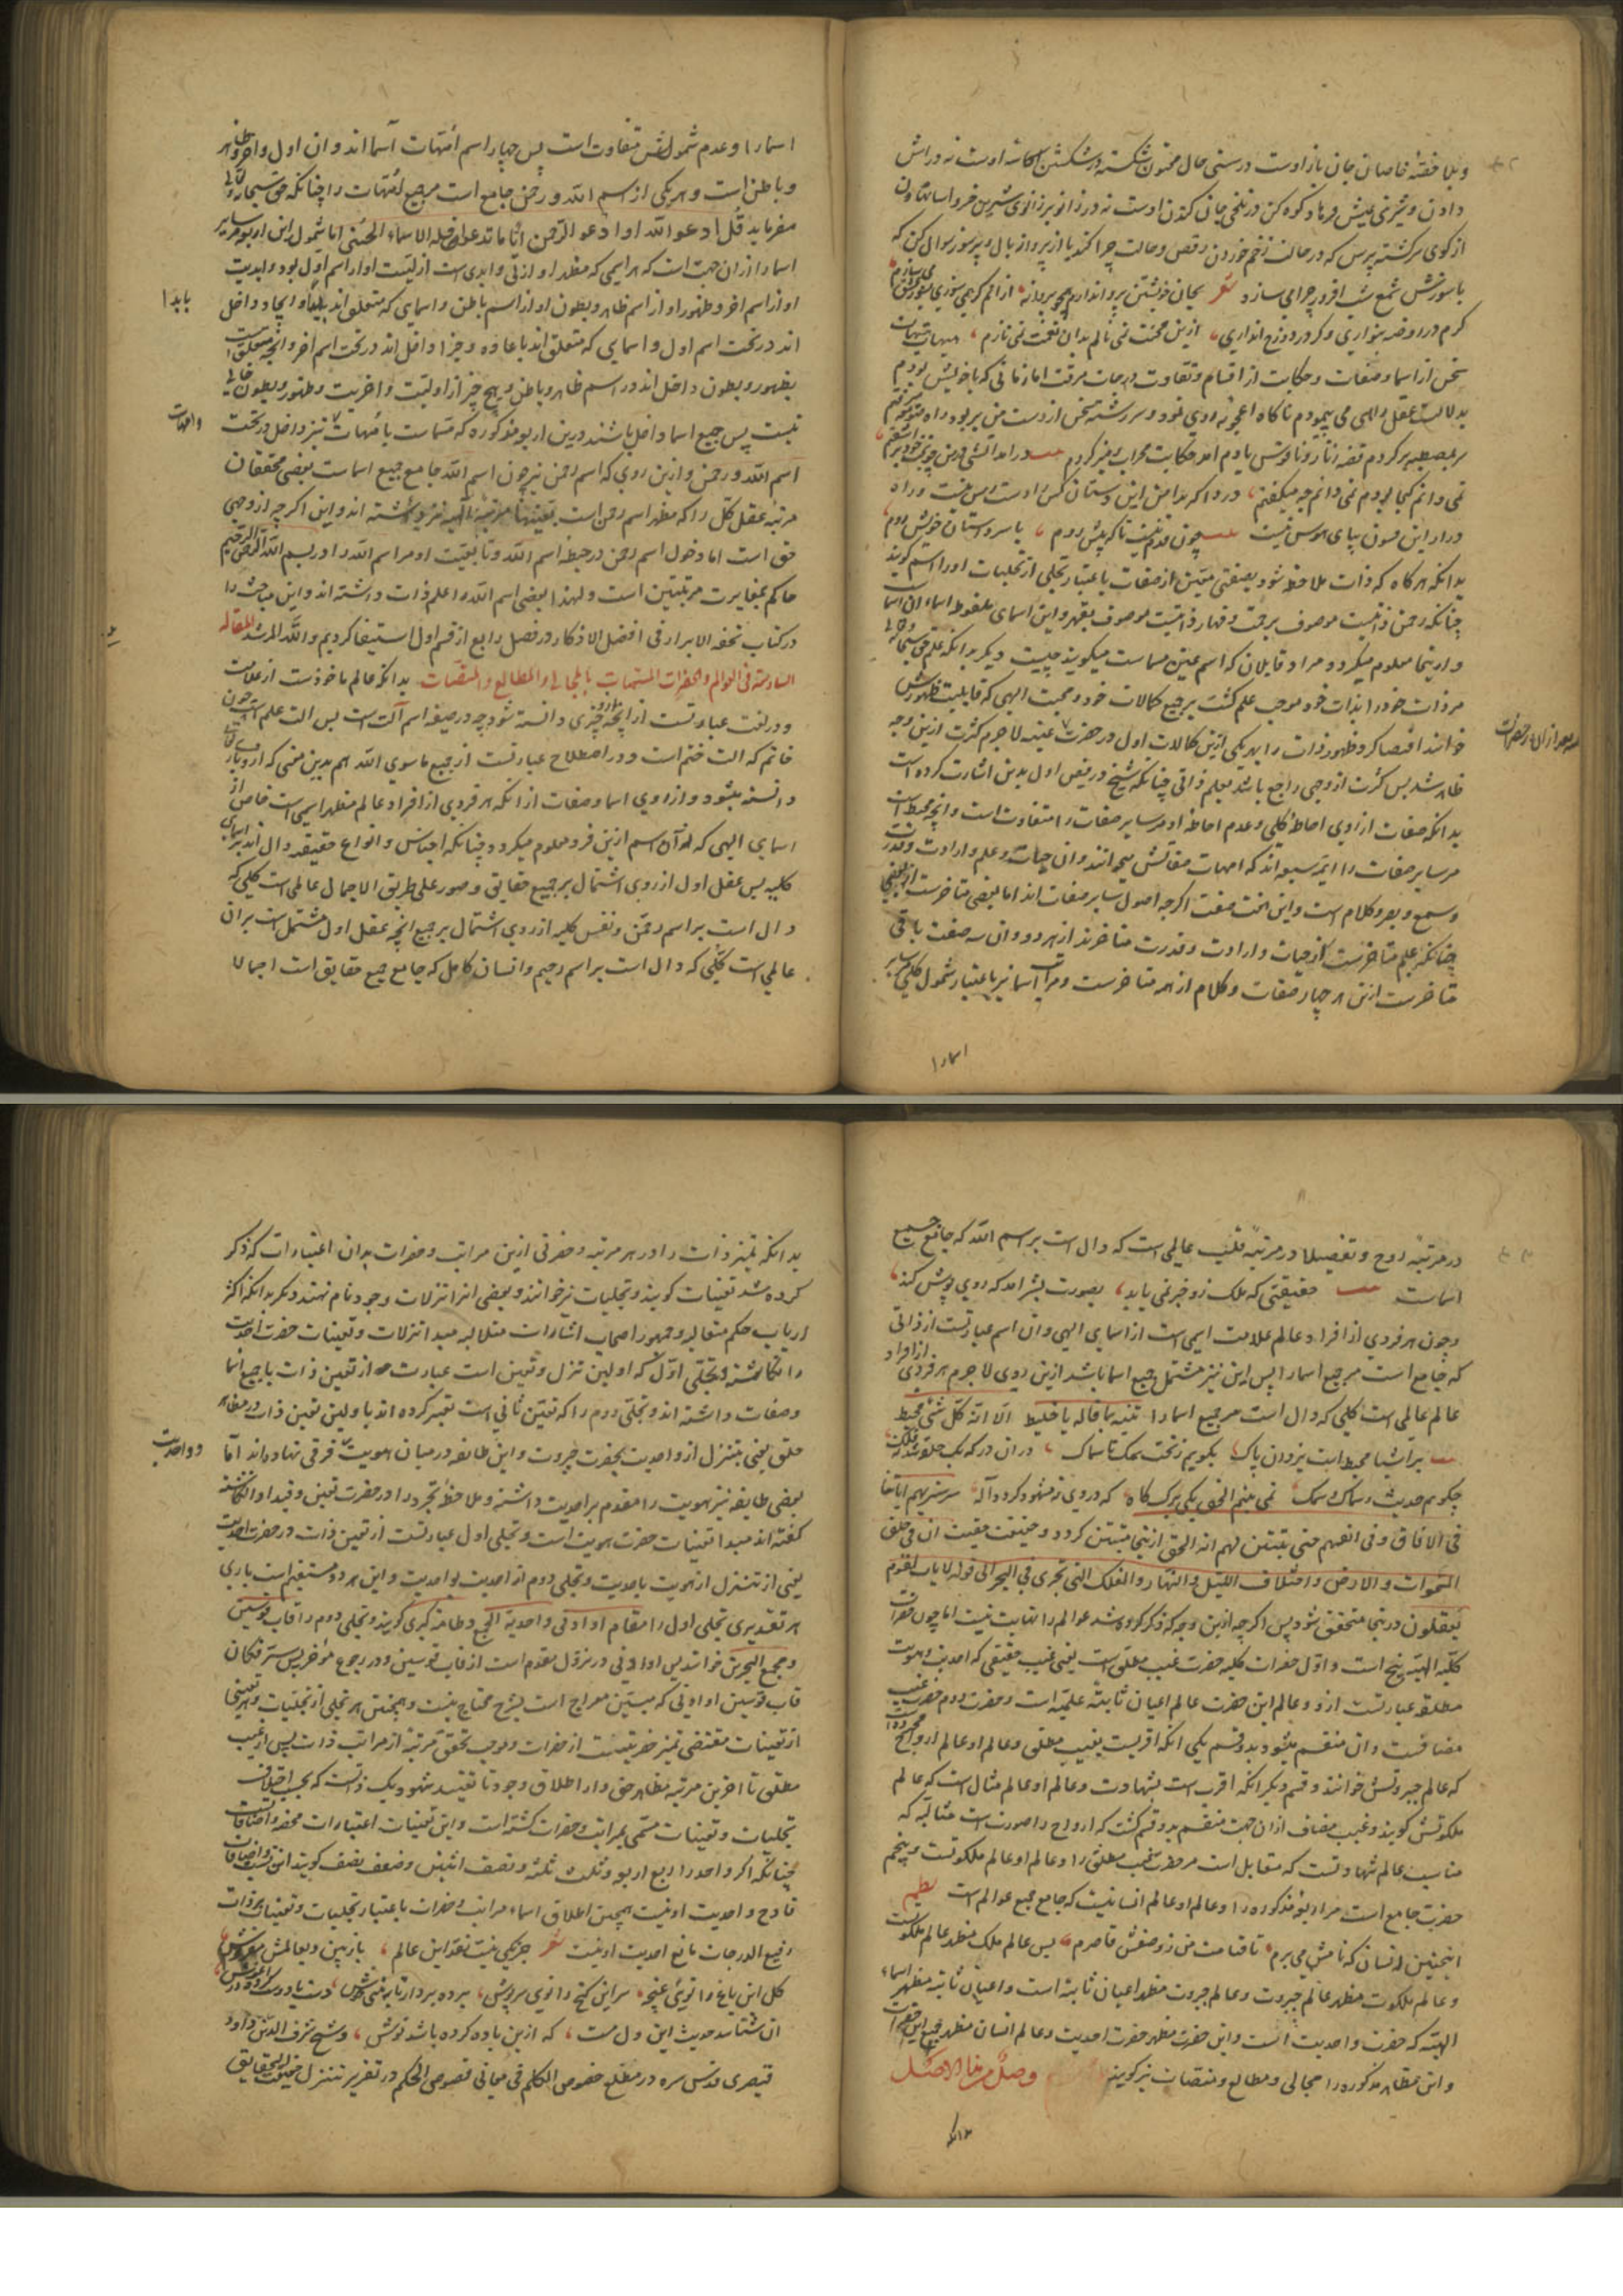 دادن و شیرینی عیش فرهاد کوه کن در تلخی جان کندن اوست نه در زانو بر زانوی شیرین
از کوی سرگشته پرس که در حالت زخم خوردن رقص و حالت چرا کند یا از پروانه بال و پر سوز سوال کن که
با سوزش شمع شب افروز چرا می سازد شعر بجان خویشتن پروا ندارم همچو پروانه
کرم در روضه بنوازی و کر در دوزخ اندازی ازین محنت نمی نالم بدان نعمت نمی نازم هیهات هیهات
سخن از اسما و صفات و حکایت از اقسام و تفاوت درجات میرفت اما زمانی که با خویش بودم
بدلالت عقل راهی می پیمودم ناکاه اعجوبه روی نمود و سر رشته سخن از دست من بربود راه
نمی دانم کجا بودم نمی دانم چه میکفتم دردا که بدامن این دستان کس را دست رس نیست و راه
در راه این فسون بپای هوس نیست چون قدم نیست تا که پیش روم با سر دستان خویش روم
بدانکه هرکاه که ذات ملاحظ شود بصفتی معین از صفات یا باعتبار تجلی از تجلیات او را اسم کویند
چنانکه رحمن ذاتیست موصوف برحمت و قهار ذاتیست موصوف بقهر و این اسمای ملفوظ اسماء ان اسما
و از ینجا معلوم میکردد مراد قایلان که اسم عین مسماست میکویند چیست دیکر بدانکه علم حق سبحانه
مر ذات خود را بذات خود موجب علم کشت بر جمیع کمالات خود و محبت الهی که قابلیت ظهورش
خوانند اقتضا کرد ظهور ذات را بهر یکی ازین کمالات اول در حضرت علمیه لاجرم کثرت ازین وجه
ظاهر شد پس کثرت از وجهی راجع باشد بعلم ذاتی چنانکه شیخ در فص اول بدین اشارت کرده است
بدانکه صفات از روی احاطه کلی و عدم احاطه او مر سایر صفات را متفاوت است و انچه محیط است
مر سایر صفات را ائمه سبعه اند که امهات صفاتش میخوانند و ان حیات و علم و ارادت و قدرت
و سمع و بصر و کلام است و این هفت صفت اکرچه اصول سایر صفات اند اما بعضی متاخرست از بعضی
چنانکه علم متاخرست از حیات و ارادت و قدرت متاخرند از هر دو و ان سه صفت باقی
متاخرست ازین هر چهار صفات و کلام از همه متاخرست و مراتب اسما نیز باعتبار شمول کلی مر سایر
اسما را
اسما را و عدم شمولش متفاوت است پس چهار اسم امهات اسما اند و ان اول و اخر و ظاهر
و باطن است و هر یکی از اسم الله و رحمن جامع است مر جمیع امهات را چنانکه حق سبحانه و تعالی
میفرماید قل ادعوا الله او ادعوا الرحمن ایاما تدعوا فله الاسماء الحسنی اما شمول این اربعه مر سایر
اسما را از ان جهت است که هر اسمی که مظهر او ازلی و ابدی است ازلیت او از اسم اول بود و ابدیت
او از اسم اخر و ظهور او از اسم ظاهر و بطون او از اسم باطن و اسمایی که متعلق اند بابدا و ایجاد داخل
بابدا
اند در تحت اسم اول و اسمایی که متعلق اند باعاده و جزا داخل اند در تحت اسم اخر و انچه متعلق است
بظهور و بطون داخل اند در اسم ظاهر و باطن و هیچ چیز از اولیت و اخریت و ظهور و بطون خالی
نیست پس جمیع اسما داخل باشند درین اربعه مذکوره که مسماست بامهات نیز داخل در تحت
و امهات
اسم الله و رحمن و ازین روی که اسم رحمن نیز چون اسم الله جامع جمیع اسماست بعضی محققان
مرتبه عقل کل را که مظهر اسم رحمن است بعینها مرتبه الهیه نیز داشته اند و این اکرچه از وجهی
حق است اما دخول اسم رحمن در حیطه اسم الله و تابعیت او مر اسم الله را در بسم الله الرحمن الرحیم
حاکم بمغایرت مرتبتین است و لهذا بعضی اسم الله را علم ذات داشته اند و این مباحث را
در کتاب تحفه الابرار فی افضل الاذکار در فصل رابع از قسم اول استیفا کردیم و الله المرشد المقاله
السادسه فی العوالم و الحضرات المسمات بالمجالی و المطالع و المنصات بدانکه عالم ماخوذست از علامت
و در لغت عبارتست از انچه بدو چیزی دانسته شود چه در صیغه اسم آلت است پس الت علم است چون
خاتم که الت ختم است و در اصطلاح عبارتست از جمیع ماسوی الله هم بدین معنی که از وی
دانسته میشود و از روی اسما و صفات از انکه هر فردی از افراد عالم مظهر اسمی است خاص از
اسمای الهی که ان اسم ازین فرد معلوم میکردد چنانکه اجناس و انواع حقیقیه دال اند بر اسمای
کلیه پس عقل اول از روی اشتمال بر جمیع حقایق و صور علی طریق الاجمال عالمی است کلی که
دال است بر اسم رحمن و نفس کلیه از روی اشتمال بر جمیع انچه عقل اول مشتمل است بر ان
عالمی است کلی که دال است بر اسم رحیم و انسان کامل که جامع جمیع حقایق است اجمالا
در مرتبه روح و تفصیلا در مرتبه قلب عالمی است که دال است بر اسم الله که جامع جمیع
اسماست حقیقتی که ملک زو خبر نمی یابد بصورت بشر امد که روی پوش کند
و چون هر فردی از افراد عالم علامت اسمی است از اسمای الهی و ان اسم عبارتست از ذاتی
که جامع است مر جمیع اسما را پس این نیز مشتمل جمیع اسما باشد ازین روی لاجرم هر فردی از افراد
عالم عالمی است کلی که دال است مر جمیع اسما را الا انه بکل شیء محیط
بر اشیا محیط است یزدان پاک بکویم ز تحت سمک تا سماک
چکویم حدیث سماک و سمک نمی بینم الحق یکی برک کاه که در وی نمشهود کردد اله سر سنریهم ایاتنا
فی الافاق و فی انفسهم حتی یتبین لهم انه الحق ازینجا مبین کردد و حقیقت ان فی خلق
السموات و الارض و اختلاف اللیل و النهار و الفلک التی تجری فی البحر الی قوله لایات لقوم
یعقلون درینجا متحقق شود پس اکرچه ازین وجه که ذکر کرده شد عوالم را نهایت نیست اما چون حضرات
کلیه الهیه پنج است و اول حضرات کلیه حضرت غیب مطلق است یعنی غیب حقیقی که احدیت و هویت
مطلقه عبارتست ازو و عالم این حضرت عالم اعیان ثابته علمیه است و حضرت دوم حضرت غیب
مضافست و ان منقسم میشود بدو قسم یکی انکه اقربست بغیب مطلق و عالم او عالم ارواح مجرده است
که عالم جبروتش خوانند و قسم دیکر انکه اقرب است بشهادت و عالم او عالم مثال است که عالم
ملکوتش کویند و غیب مضاف از ان جهت منقسم بدو قسم کشت که ارواح را صورت است مثالیه که
مناسب عالم شهادتست که مقابل است مر حضرت غیب مطلق را و عالم او عالم ملکوتست و پنجم
حضرت جامع است مر اربعه مذکوره را و عالم او عالم انسانیست که جامع جمیع عوالم است نظم
اینچنین انسان که نامش می برم تا قیامت من ز وصفش قاصرم پس عالم ملک مظهر عالم ملکوتست
و عالم ملکوت مظهر عالم جبروت و عالم جبروت مظهر اعیان ثابته است و اعیان ثابته مظهر اسماء
الهیه که حضرت واحدیت است و این حضرت مظهر حضرت احدیت و عالم انسان مظهر جمیع این حضرات
و این مظاهر مذکوره را مجالی و مطالع و منصات نیز کویند وصل من هذا الاصل
بدانکه
بدانکه تمیز ذات را در هر مرتبه و حضرتی ازین مراتب و حضرات بدان اعتبارات که ذکر
کرده شد تعینات کویند و تجلیات نیز خوانند و بعضی انرا تنزلات وجود نام نهند و دیکر بدانکه اکثر
ارباب حکم متعالیه و جمهور اصحاب اشارات متلالیه مبدا تنزلات و تعینات حضرت احدیت
را انکاشته و تجلی اول که اولین تنزل و تعین است عبارت از تعین ذات با جمیع اسما
و صفات داشته اند و تجلی دوم را که تعین ثانی است تعبیر کرده اند باولین تعین ذات در مظاهر
خلق یعنی بتنزل از واحدیت بحضرت جبروت و این طایفه در میان هویت فرقی ننهاده اند اما
و واحدیت
بعضی طایفه نیز هویت را مقدم بر احدیت داشته و ملاحظه تجرد را در حضرت تعین و قید او انکاشته
کفته اند مبدا تعینات حضرت هویت است و تجلی اول عبارتست از تعین ذات در حضرت احدیت
یعنی از تنزل از هویت باحدیت و تجلی دوم از احدیت بواحدیت و این هر دو مستقیم است باری
هر تقدیری تجلی اول را مقام او ادنی و احدیه الجمع و طامه کبری کویند و تجلی دوم را قاب قوسین
و مجمع البحرین خوانند پس او ادنی در نزول مقدم است از قاب قوسین و در رجوع مؤخر پس سر فکان
قاب قوسین او ادنی که مبین معراج است بشرح محتاج نیست و همچنین هر تجلی از تجلیات و هر تعینی
از تعینات مقتضی تمیز حضرتیست از حضرات و موجب تحقق مرتبه از مراتب ذات پس از غیب
مطلق تا اخرین مرتبه مظاهر حق و از اطلاق وجود تا تقیید شهود یک ذاتست که بحسب اختلاف
تجلیات و تعینات مسمی بمراتب و حضرات کشته است و این تعینات اعتبارات محض و اضافاتست
چنانکه اکر واحد را ربع اربعه و ثلث ثلثه و نصف اثنین و ضعف نصف کویند این نسب و اضافات
قادح واحدیت او نیست همچنین اطلاق اسماء مراتب و حضرات باعتبار تجلیات و تعینات بر ذات
رفیع الدرجات مانع احدیت او نیست شعر جز یکی نیست نقد این عالم باز بین و بعالمش مفروش
کل این باغ را توئی غنچه سر این کنج را توی سرپوش
ان شناسد حدیث این دل مست که ازین باده کرده باشد نوش و شیخ شرف الدین داود
قیصری قدس سره در مطلع خصوص الکلم فی معانی فصوص الحکم در تقریر تنزل حقیقت الحقایق